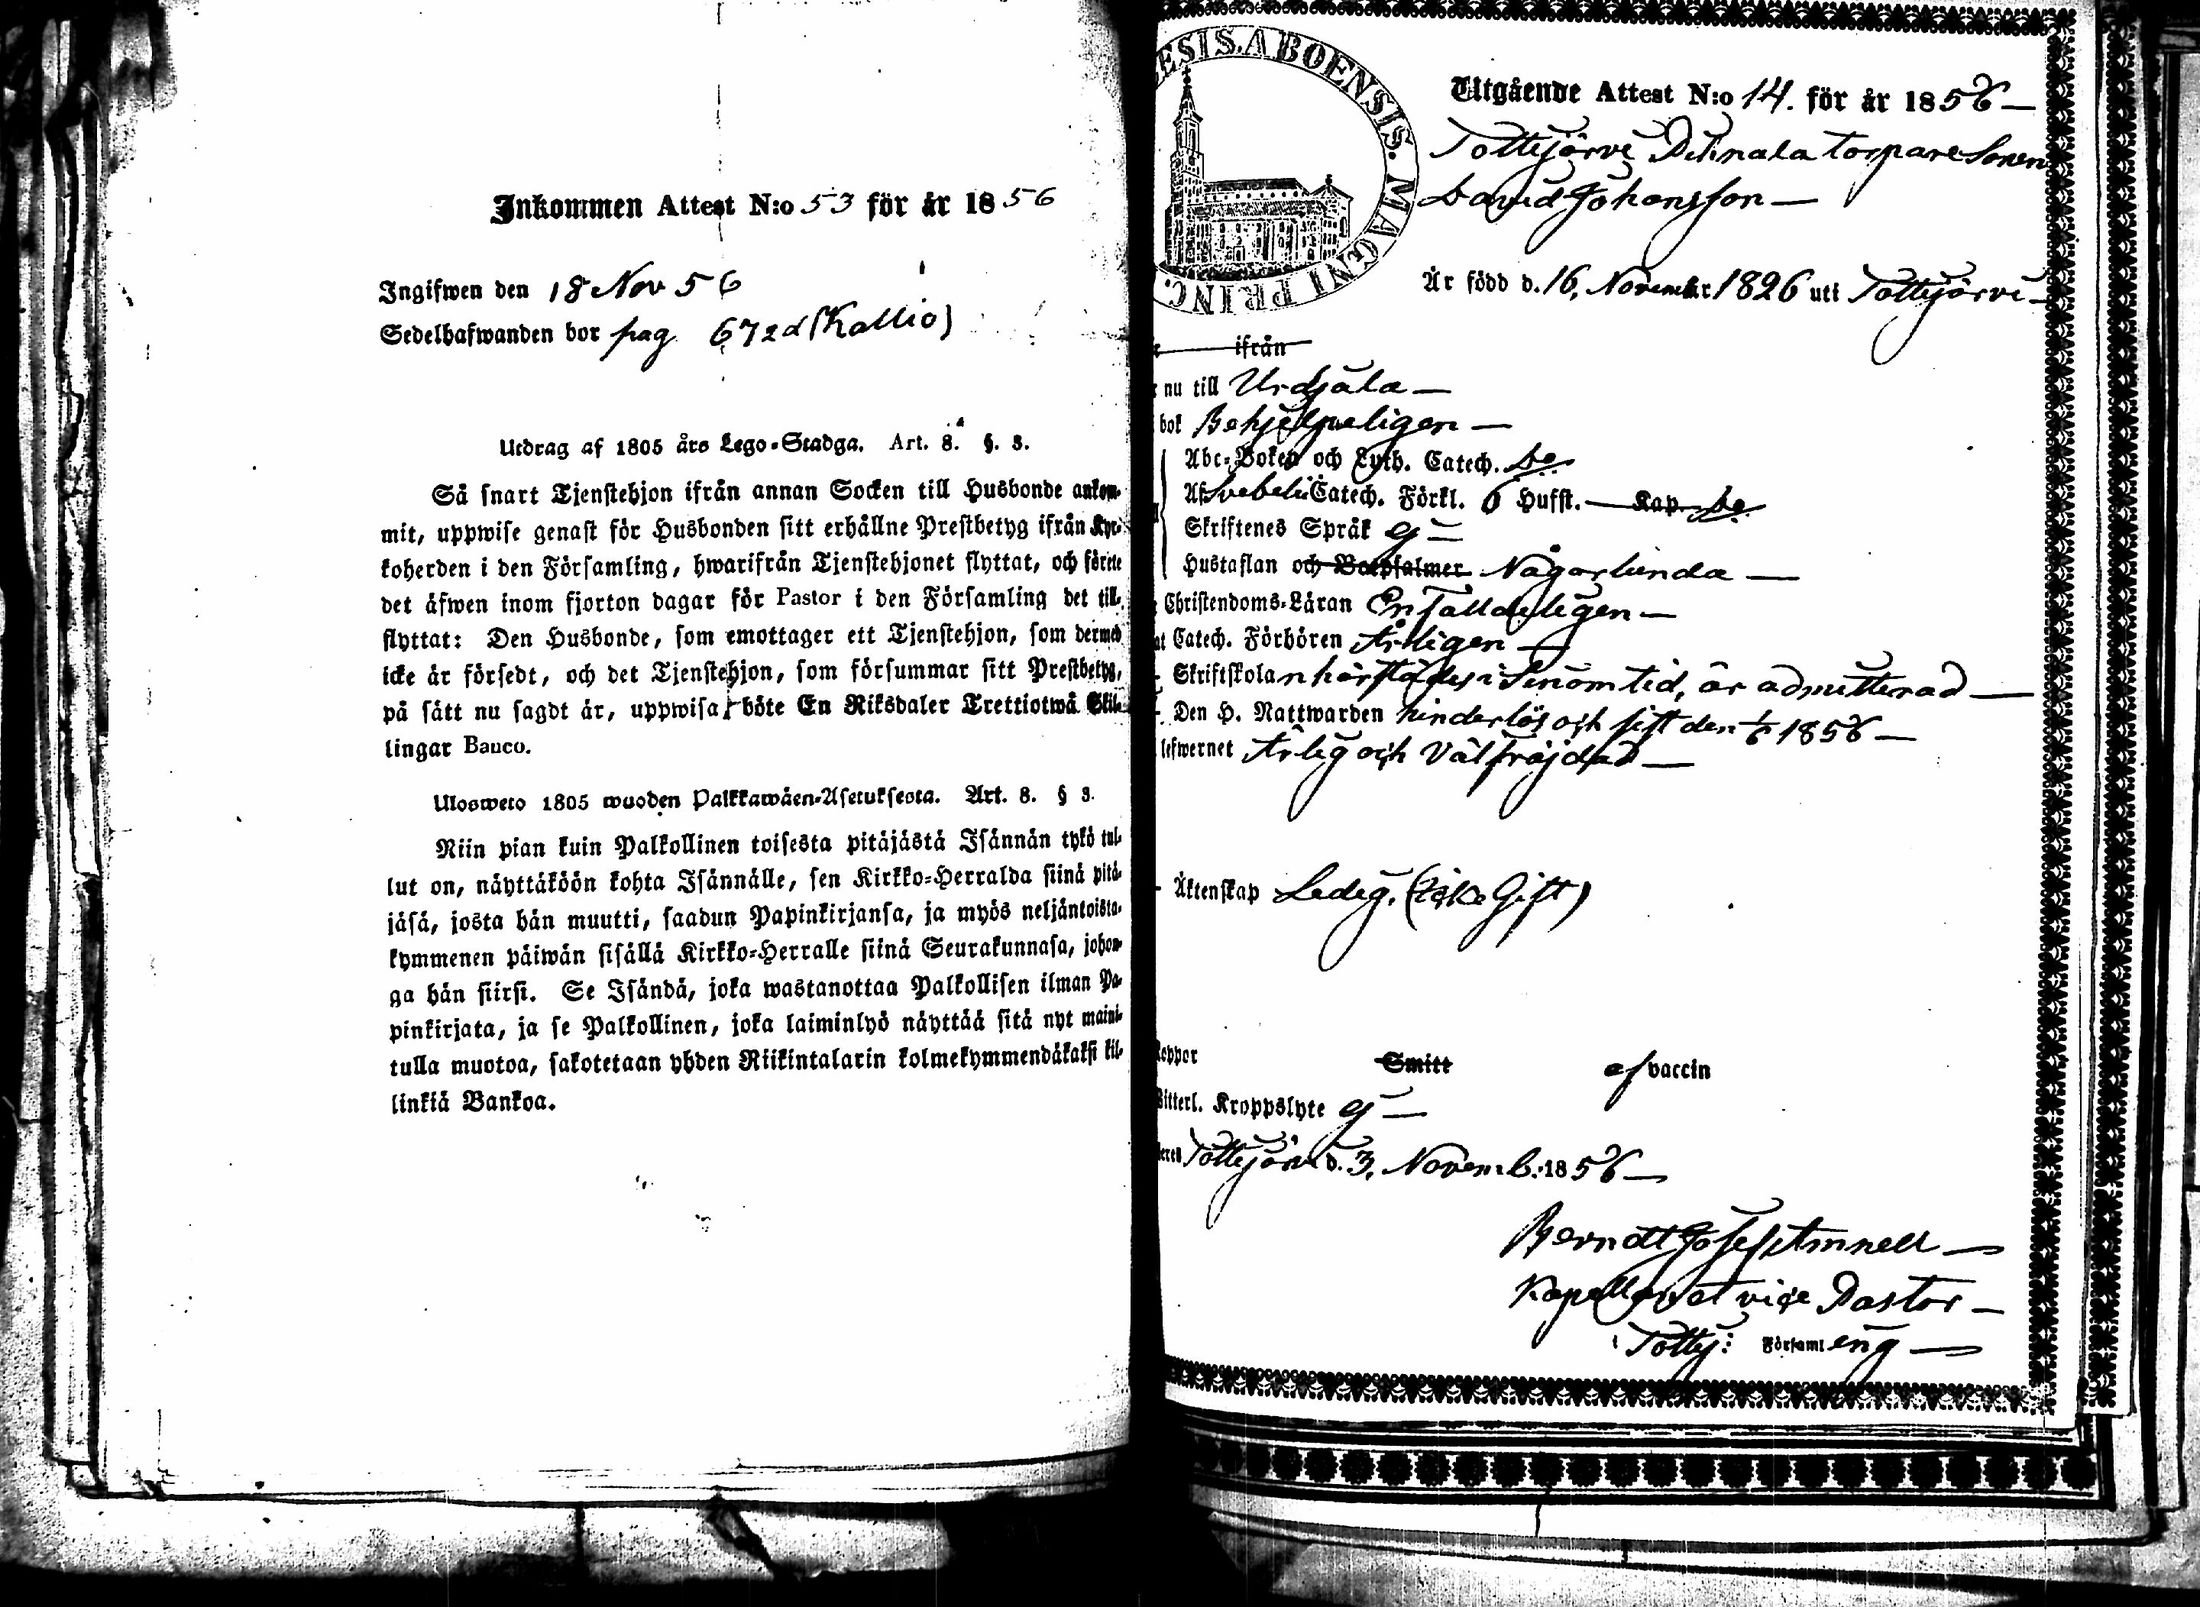 Inkommen Attest N:o 53 för år 1856
Ingifwen den 18 Nov 56
Sedelhafwanden bor pag 672d (Kallio)
Utdrag af 1805 års Lego-Stadga. Art. 8. §. 3.
Så snart Tjenstehjon ifrån annan Socken till Husbonde ankom-
mit, uppwise genast för Husbonden sitt erhållne Prestbetyg ifrån Kyr-
koherden i den Församling, hwarifrån Tjenstehjonet flyttat, och förete
det äfwen inom fjorton dagar för Pastor i den Församling det till-
flyttat: Den Husbonde, som emottager ett Tjenstehjon, som dermed
icke är försedt, och det Tjenstehjon, som försummar sitt Prestbetyg,
på sätt nu sagdt är, uppwisa, böte En Riksdaler Trettiotwå Skil-
lingar Banco.
Ulosweto 1805 wuoden Palkkawäen-Asetuksesta. Art. 8. § 3.
Niin pian kuin Palkollinen toisesta pitäjästä Isännän tykö tul-
lut on, näyttäköön kohta Isännälle, sen Kirkko-Herralda siinä pitä-
jäsä, josta hän muutti, saadun Papinkirjansa, ja myös neljäntoista-
kymmenen päiwän sisällä Kirkko-Herralle siinä Seurakunnasa, johon-
ga hän siirsi. Se Isändä, joka wastanottaa Palkollisen ilman Pa-
pinkirjata, ja se Palkollinen, joka laiminlyö näyttää sitä nyt maini-
tulla muotoa, sakotetaan yhden Riikintalarin kolmekymmendäkaksi kil-
linkiä Bankoa.
ESIS. ABOENSIS. MAGNI PRINC.
Utgående Attest N:o 14. för år 1856
Tottijärvi torpare Sonen
David Johansson
Är född d. 16. Novembr 1826 uti Tottijärvi
ifrån
nu till Urdjala
bok Behjelpeligen
Abc-Boken och Luth. Catech. do
Af Svebelii Catech. Förkl. 6 Hufst. Kap. do
Skriftenes Språk ej
Hustaflan och Botpsalmer Någorlunda
Christendoms-Läran Enfalldeligen
Catech. Förhören Årligen
Skriftskolan härstädes i sinom tid, är admitterad
Den H. Nattwarden hinderlös och sist den 1/6 1856
lefwernet Ärlig och Välfräjdad
Äktenskap Ledig. (icke Gift)
koppor Smitt af vaccin
Witterl. Kroppslyte ej
Tottijärvi d. 3. Novemb. 1856
Berndt Josef Amnell
Kapellan et vice Pastor
i Tottij: Församl eng